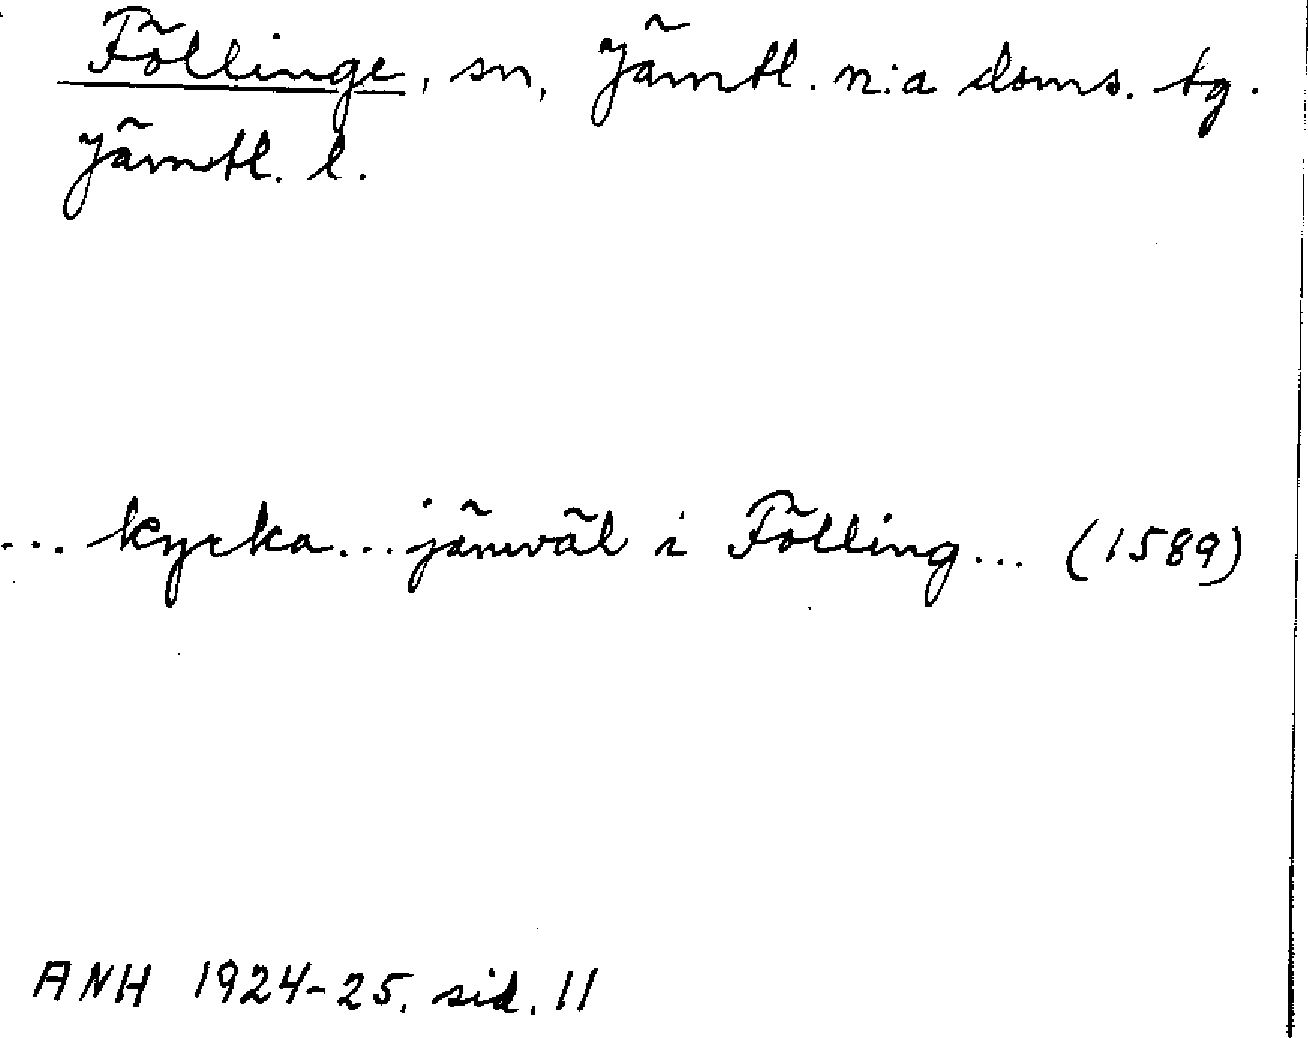 Föllinge, sn, Jämtl. n:a doms. tg.
Jämtl. l.
... kycka... jämväl i Fölling... (1589)
ANH 1924-25, sid. 11